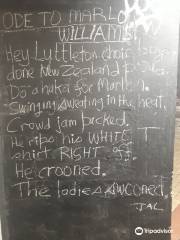 ODE TO MARLO
WILLIAMS
Hey Lyttleton choir
done New Zealand
Do a haka for Marlon.
Swinging sweating in the heat.
Crowd jam packed.
He rips his WHITE T
shirt RIGHT off.
He crooned.
The ladies swooned.
JAL
Tripadvisor